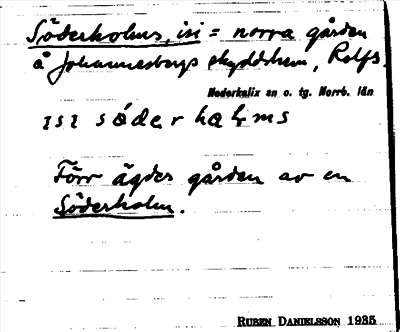 Söderholms, isi = norra gården
å Johannesbergs skyddshem, Rolfs.
Nederkalix sn o. tg. Norrb. län
ısı södərhɑlms
Förr ägdes gården av en
Söderholm.
RUBEN DANIELSSON 1935